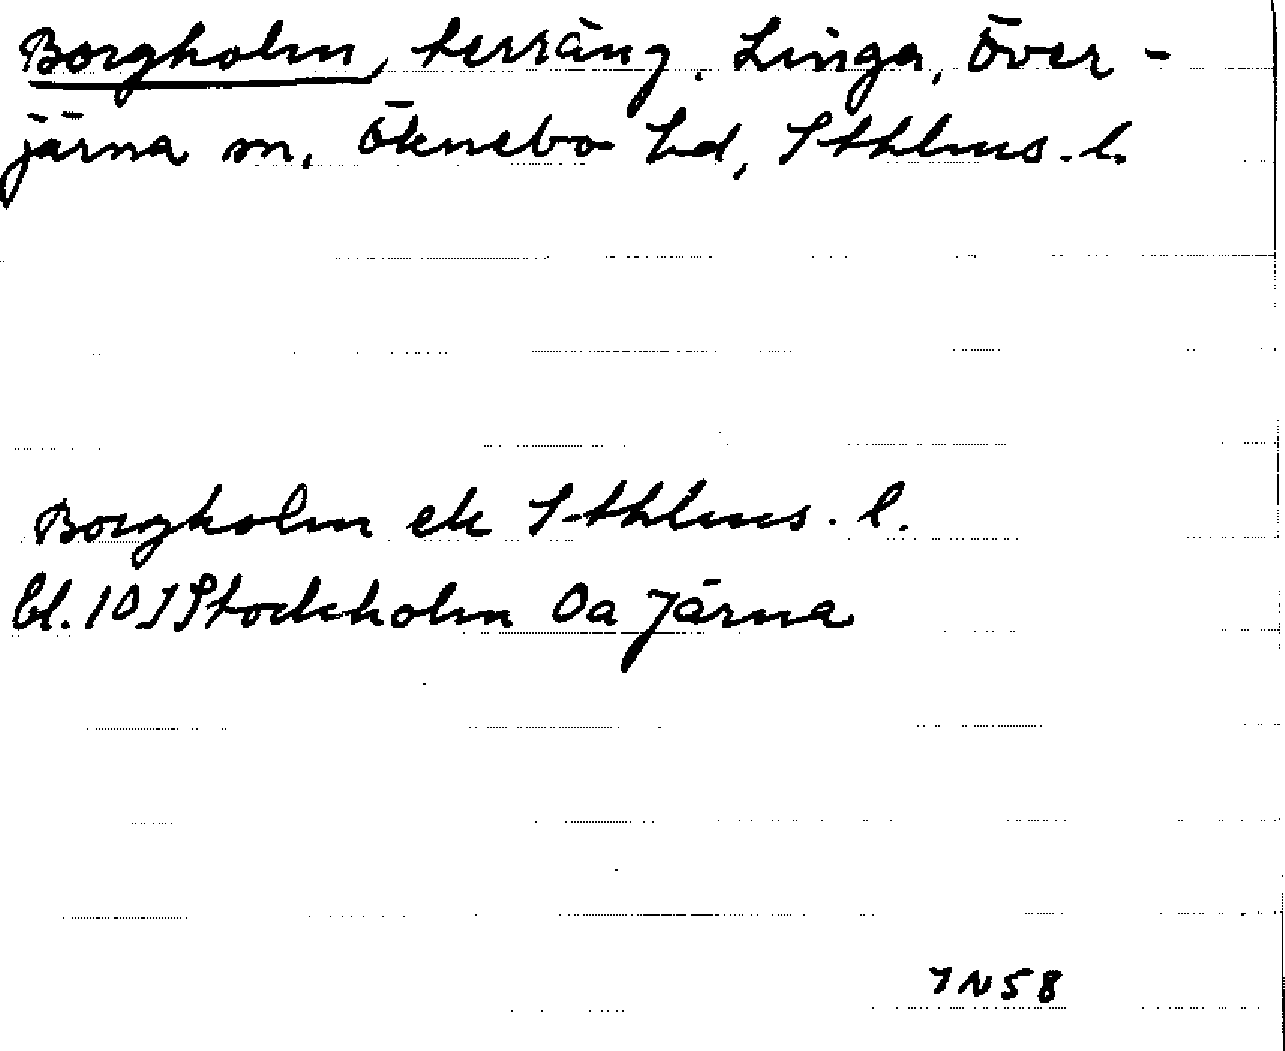 Borgholm, terräng, Linga, Över-
järna sn, Öknebo hd, Sthlms. l.
Borgholm ek Sthlms. l.
bl. 10 I Stockholm 0a Järna
IN58